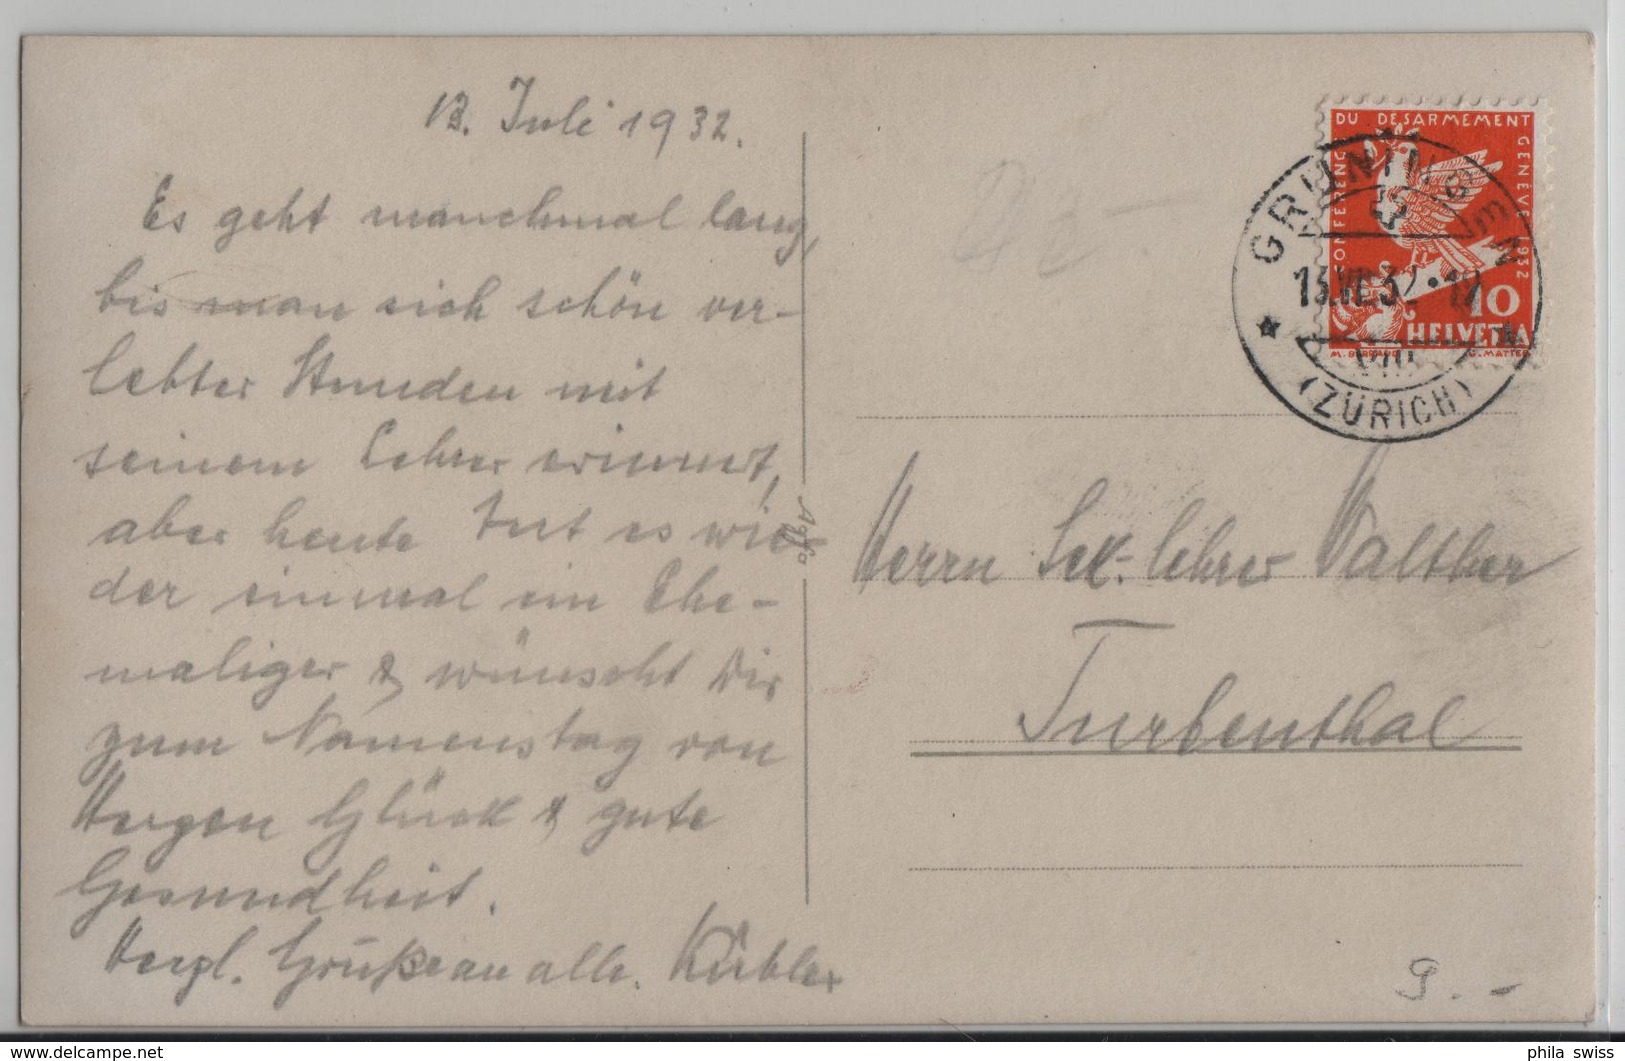 13. Juli 1932.
Es geht manchmal lang,
bis man sich schön ver-
lebter Stunden mit
seinem Lehrer erinnert,
aber heute tut es wie-
der einmal ein Ehe-
maliger & wünscht Dir
zum Namenstag von
Herzen Glück & gute
Gesundheit.
Herzl. Grüße an alle. Kübler
Agfa
CONFERENCE DU DESARMEMENT GENÈVE 1932
10
HELVETIA
GRÜNINGEN
13.VII.32
(ZÜRICH)
Herrn Sek.-lehrer Walther
Turbenthal
9.-
www.delcampe.net
phila_swiss